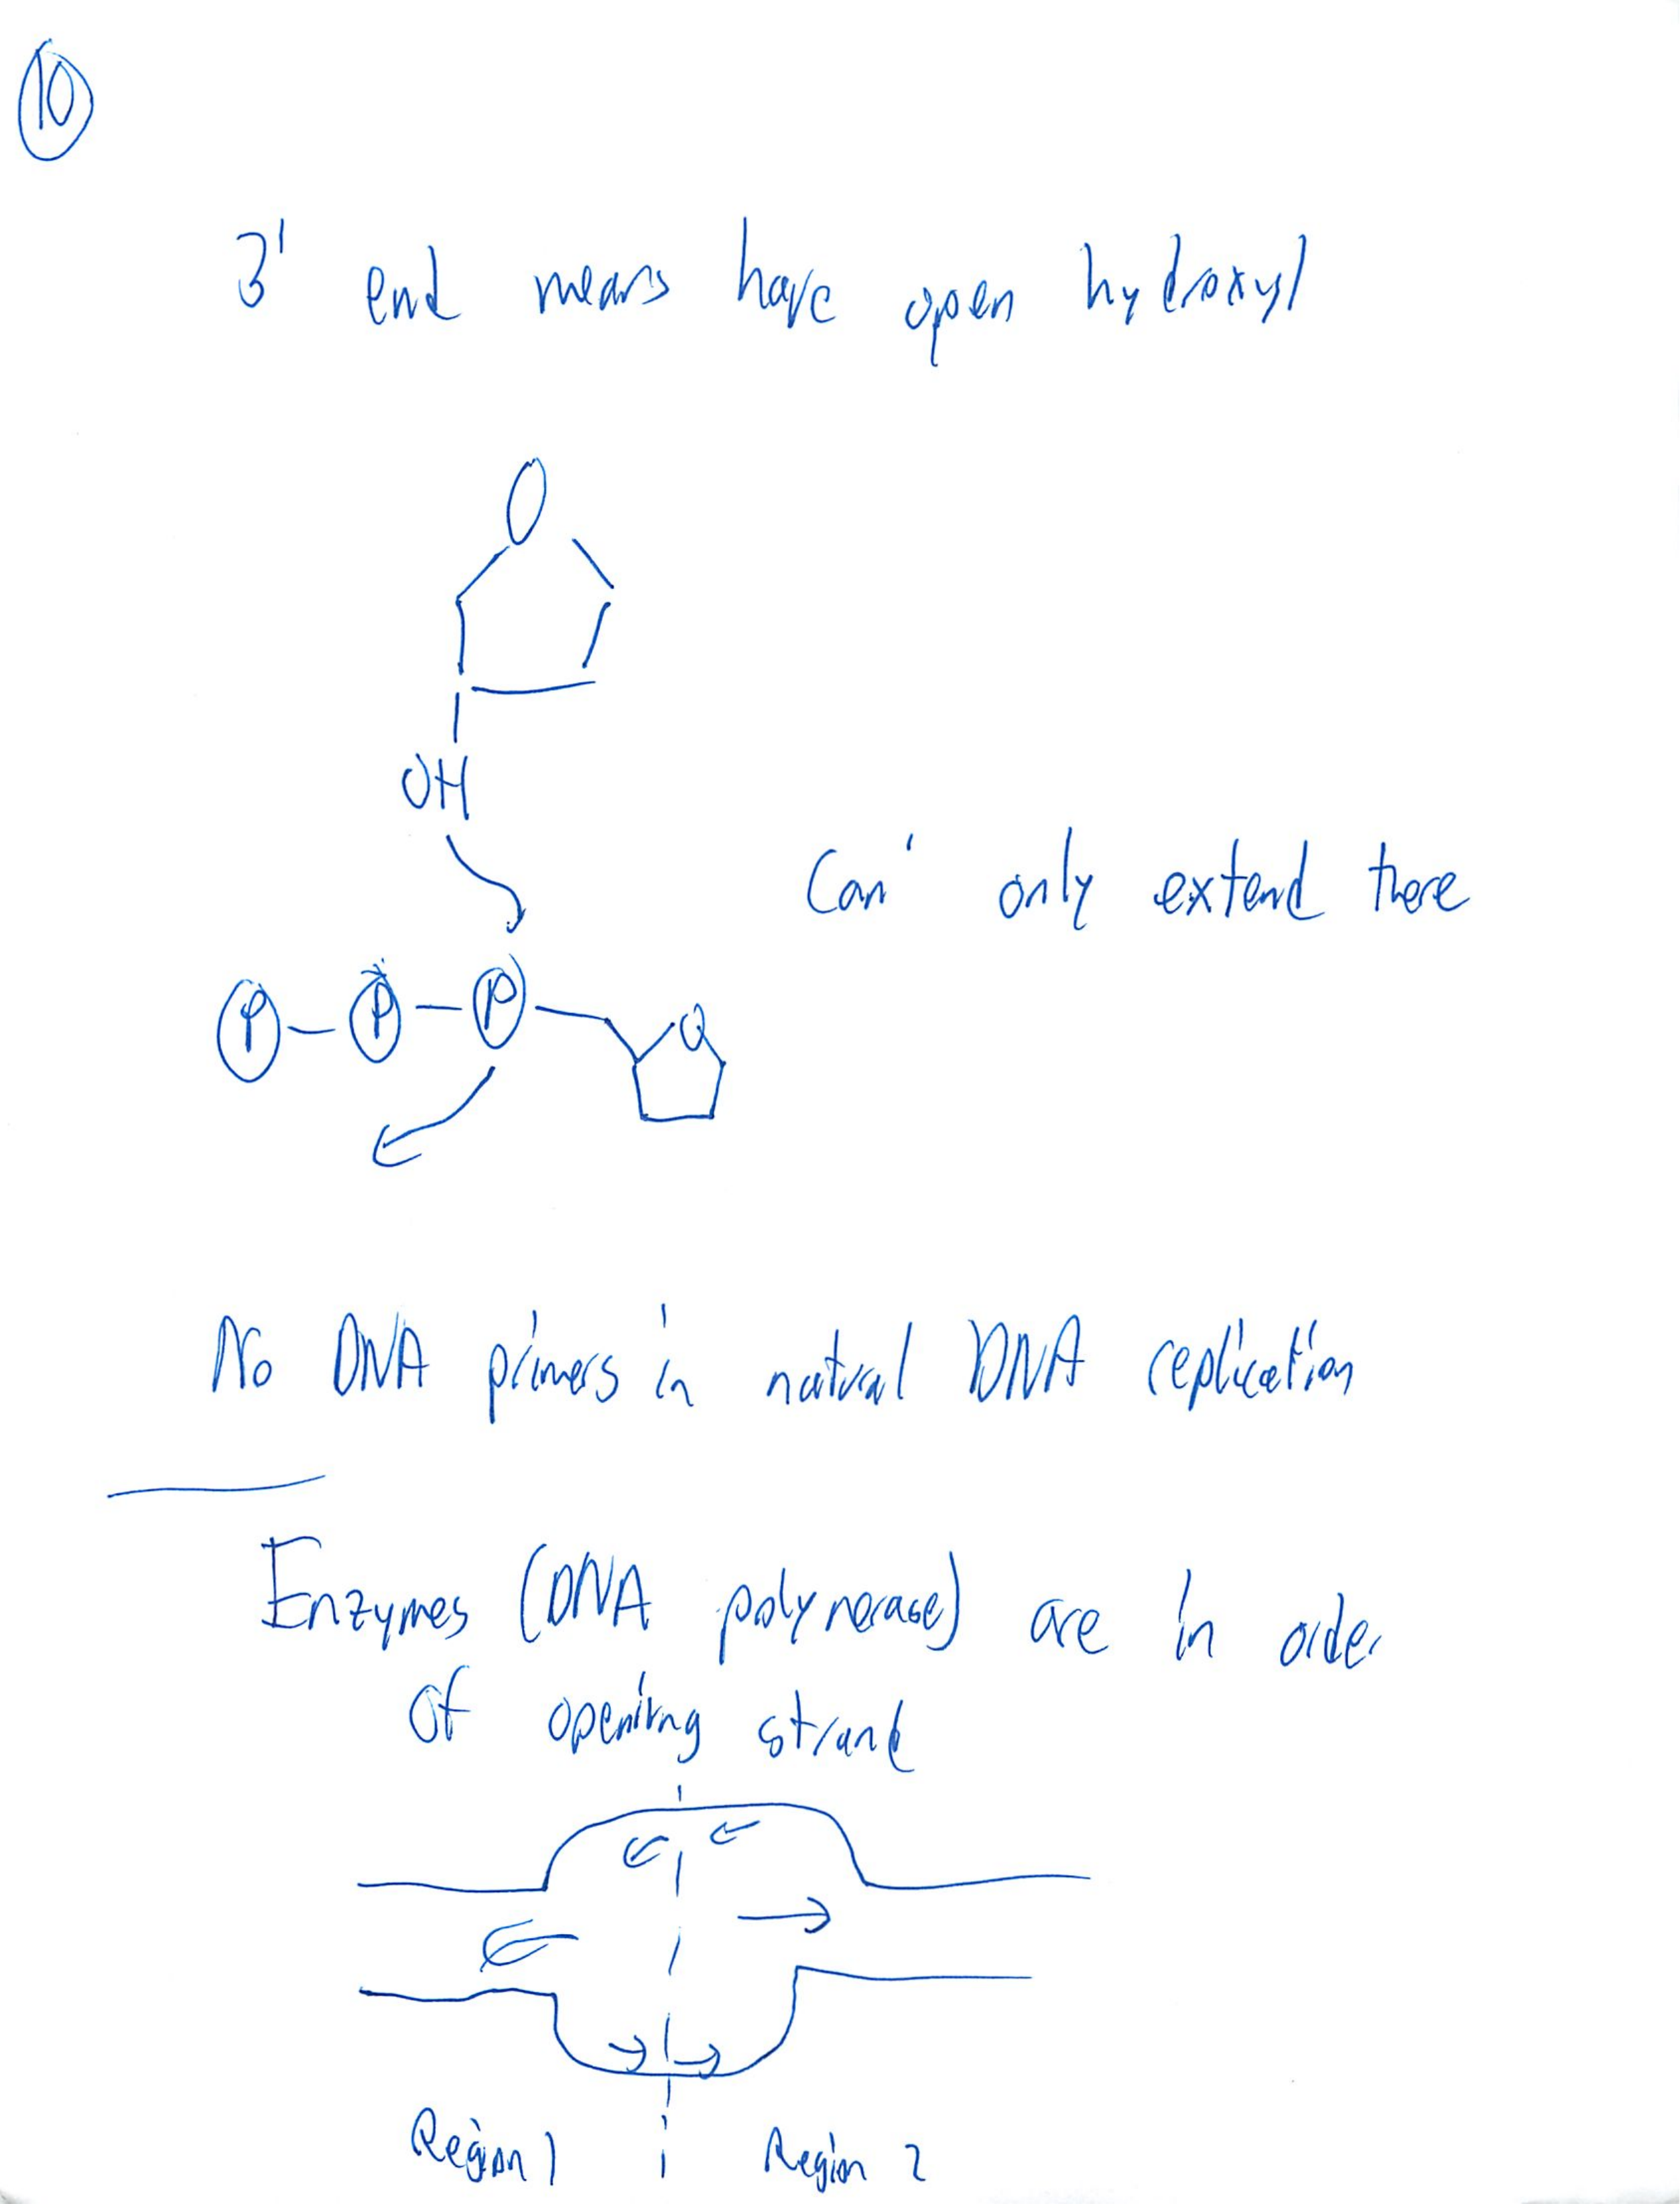 10
3' end means have open hydroxyl
O
OH
Can only extend there
P - P - P
O
No DNA primers in natural DNA replication
Enzymes (DNA polymerase) are in order
of opening strand
Region 1 Region 2